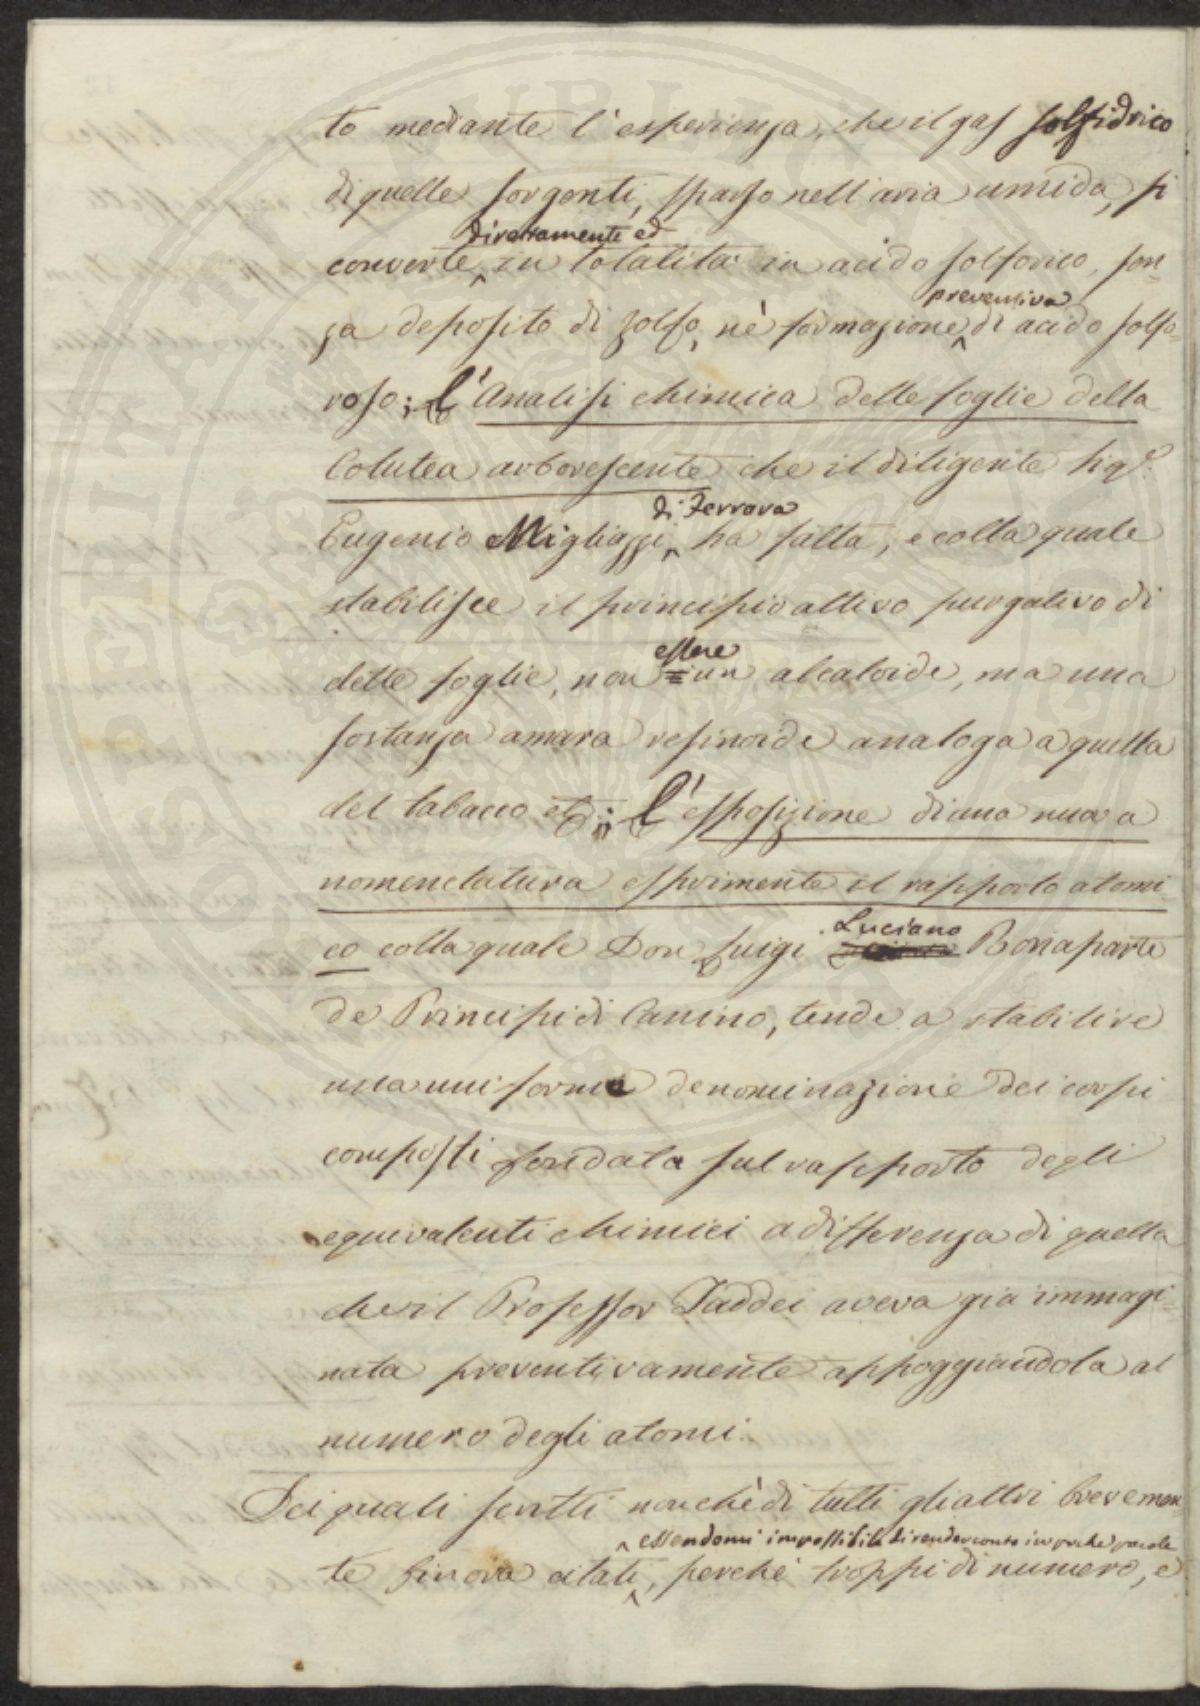 to mediante l'esperienza, che il gas solfidrico
di quelle sorgenti, sparso nell'aria umida, si
direttamente ed
converte in totalità in acido solforico, sen=
preventiva
za deposito di zolfo, nè formazione di acido solfo=
roso; l'Analisi chimica delle foglie della
Colutea arborescente che il diligente Sigr.
di Ferrara
Eugenio Migliazzi ha fatta, e colla quale
stabilisce il principio attivo purgativo di
essere
dette foglie, non un alcaloide, ma una
sostanza amara resinoide analoga a quella
del tabacco etc; l'esposizione di una nuova
nomenclatura esprimente il rapporto atomi=
Luciano
co colla quale Don Luigi Bonaparte
de Principi di Canino, tende a stabilire
una uniforme denominazione dei corpi
composti fondata sul rapporto degli
equivalenti chimici a differenza di quella
che il Professor Taddei aveva già immagi=
nata preventivamente appoggiandola al
numero degli atomi.
Dei quali scritti nonchè di tutti gli altri brevemen=
essendomi impossibile di render conto in poche parole
te finora citati, perchè troppi di numero, e